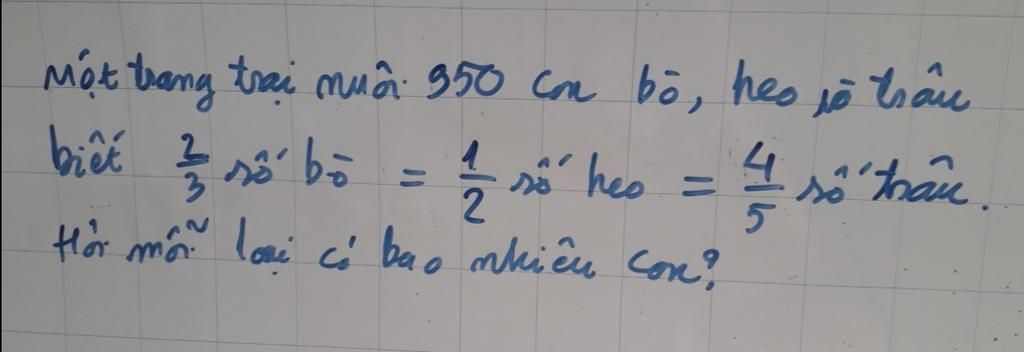 Một trang trại nuôi 950 con bò, heo và trâu
biết 2/3 số bò = 1/2 số heo = 4/5 số trâu.
Hỏi mỗi loại có bao nhiêu con?